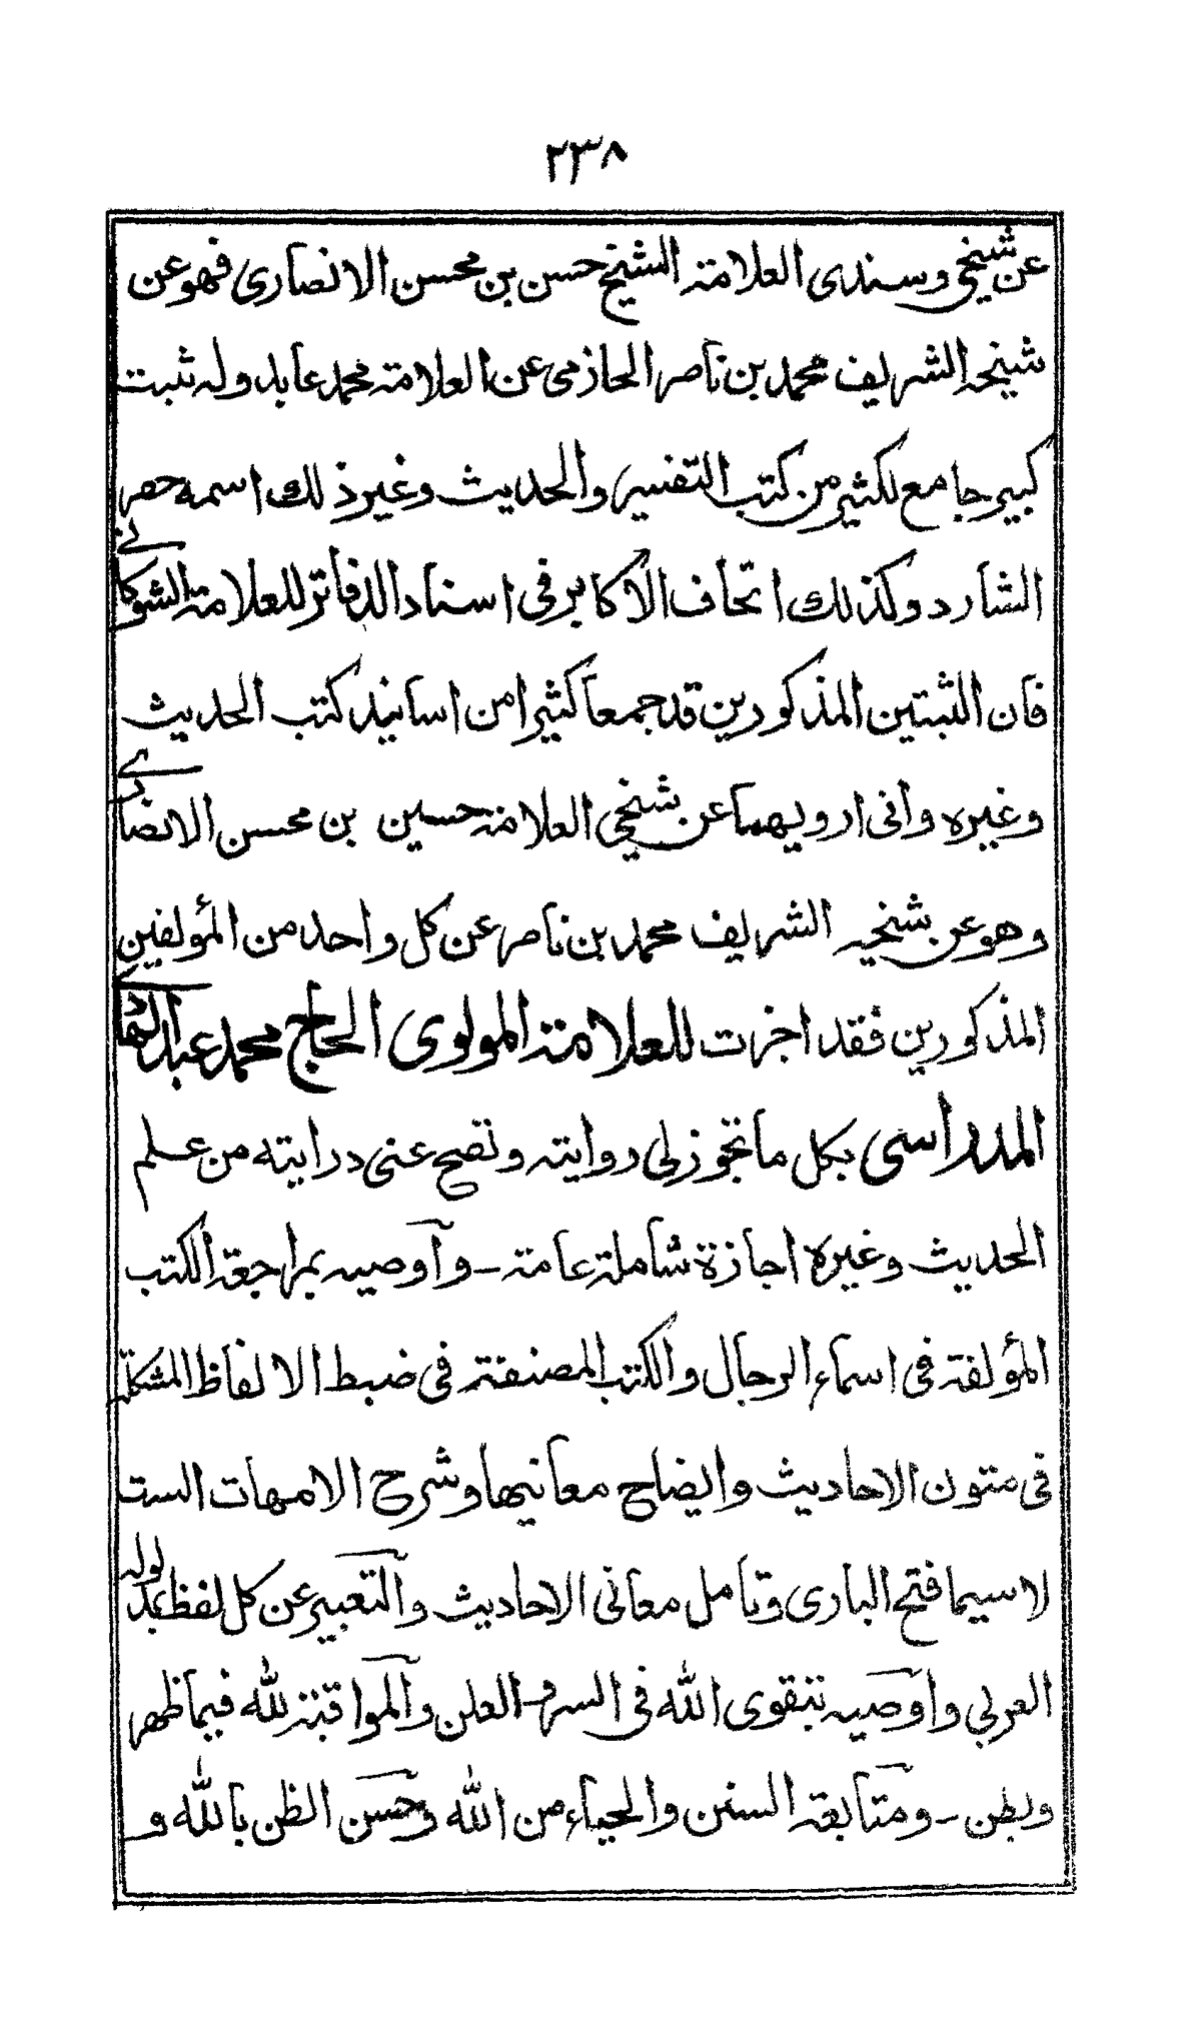 ٢٣٨
عن شيخي وسندى العلامة الشيخ حسن بن محسن الانصارى فهو عن
شيخه الشريف محمد بن ناصر الحازمى عن العلامة محمد عابد وله ثبت
كبير جامع لكثير من كتب التفسير والحديث وغير ذلك اسمه حصر
الشارد وكذلك اتحاف الاكابر فى اسناد الدفاتر للعلامة الشوكانے
فان الثبتين المذكورين قد جمعا كثيرا من اسانيد كتب الحديث
وغيره وانى ارويهما عن شيخي العلامة حسين بن محسن الانصارے
وهو عن شيخيه الشريف محمد بن ناصر عن كل واحد من المؤلفين
المذكورين فقد اجزت للعلامة المولوى الحاج محمد عبد الهادے
المدراسى بكل ما تجوز لى روايته وتصح عنى درايته من علم
الحديث وغيره اجازة شاملة عامة - وآوصيه بمراجعة الكتب
المؤلفة فى اسماء الرجال والكتب المصنفة فى ضبط الالفاظ المشكلة
فى متون الاحاديث وايضاح معانيها وشرح الامهات الست
لاسيما فتح البارى وتامل معانى الاحاديث والتعبير عن كل لفظ بمدلوله
العربي واوصيه بتقوى الله فى السر والعلن والمواقبة لله فيما ظهر
وبطن - ومتابعة السنن والحياء من الله وحسن الظن بالله و